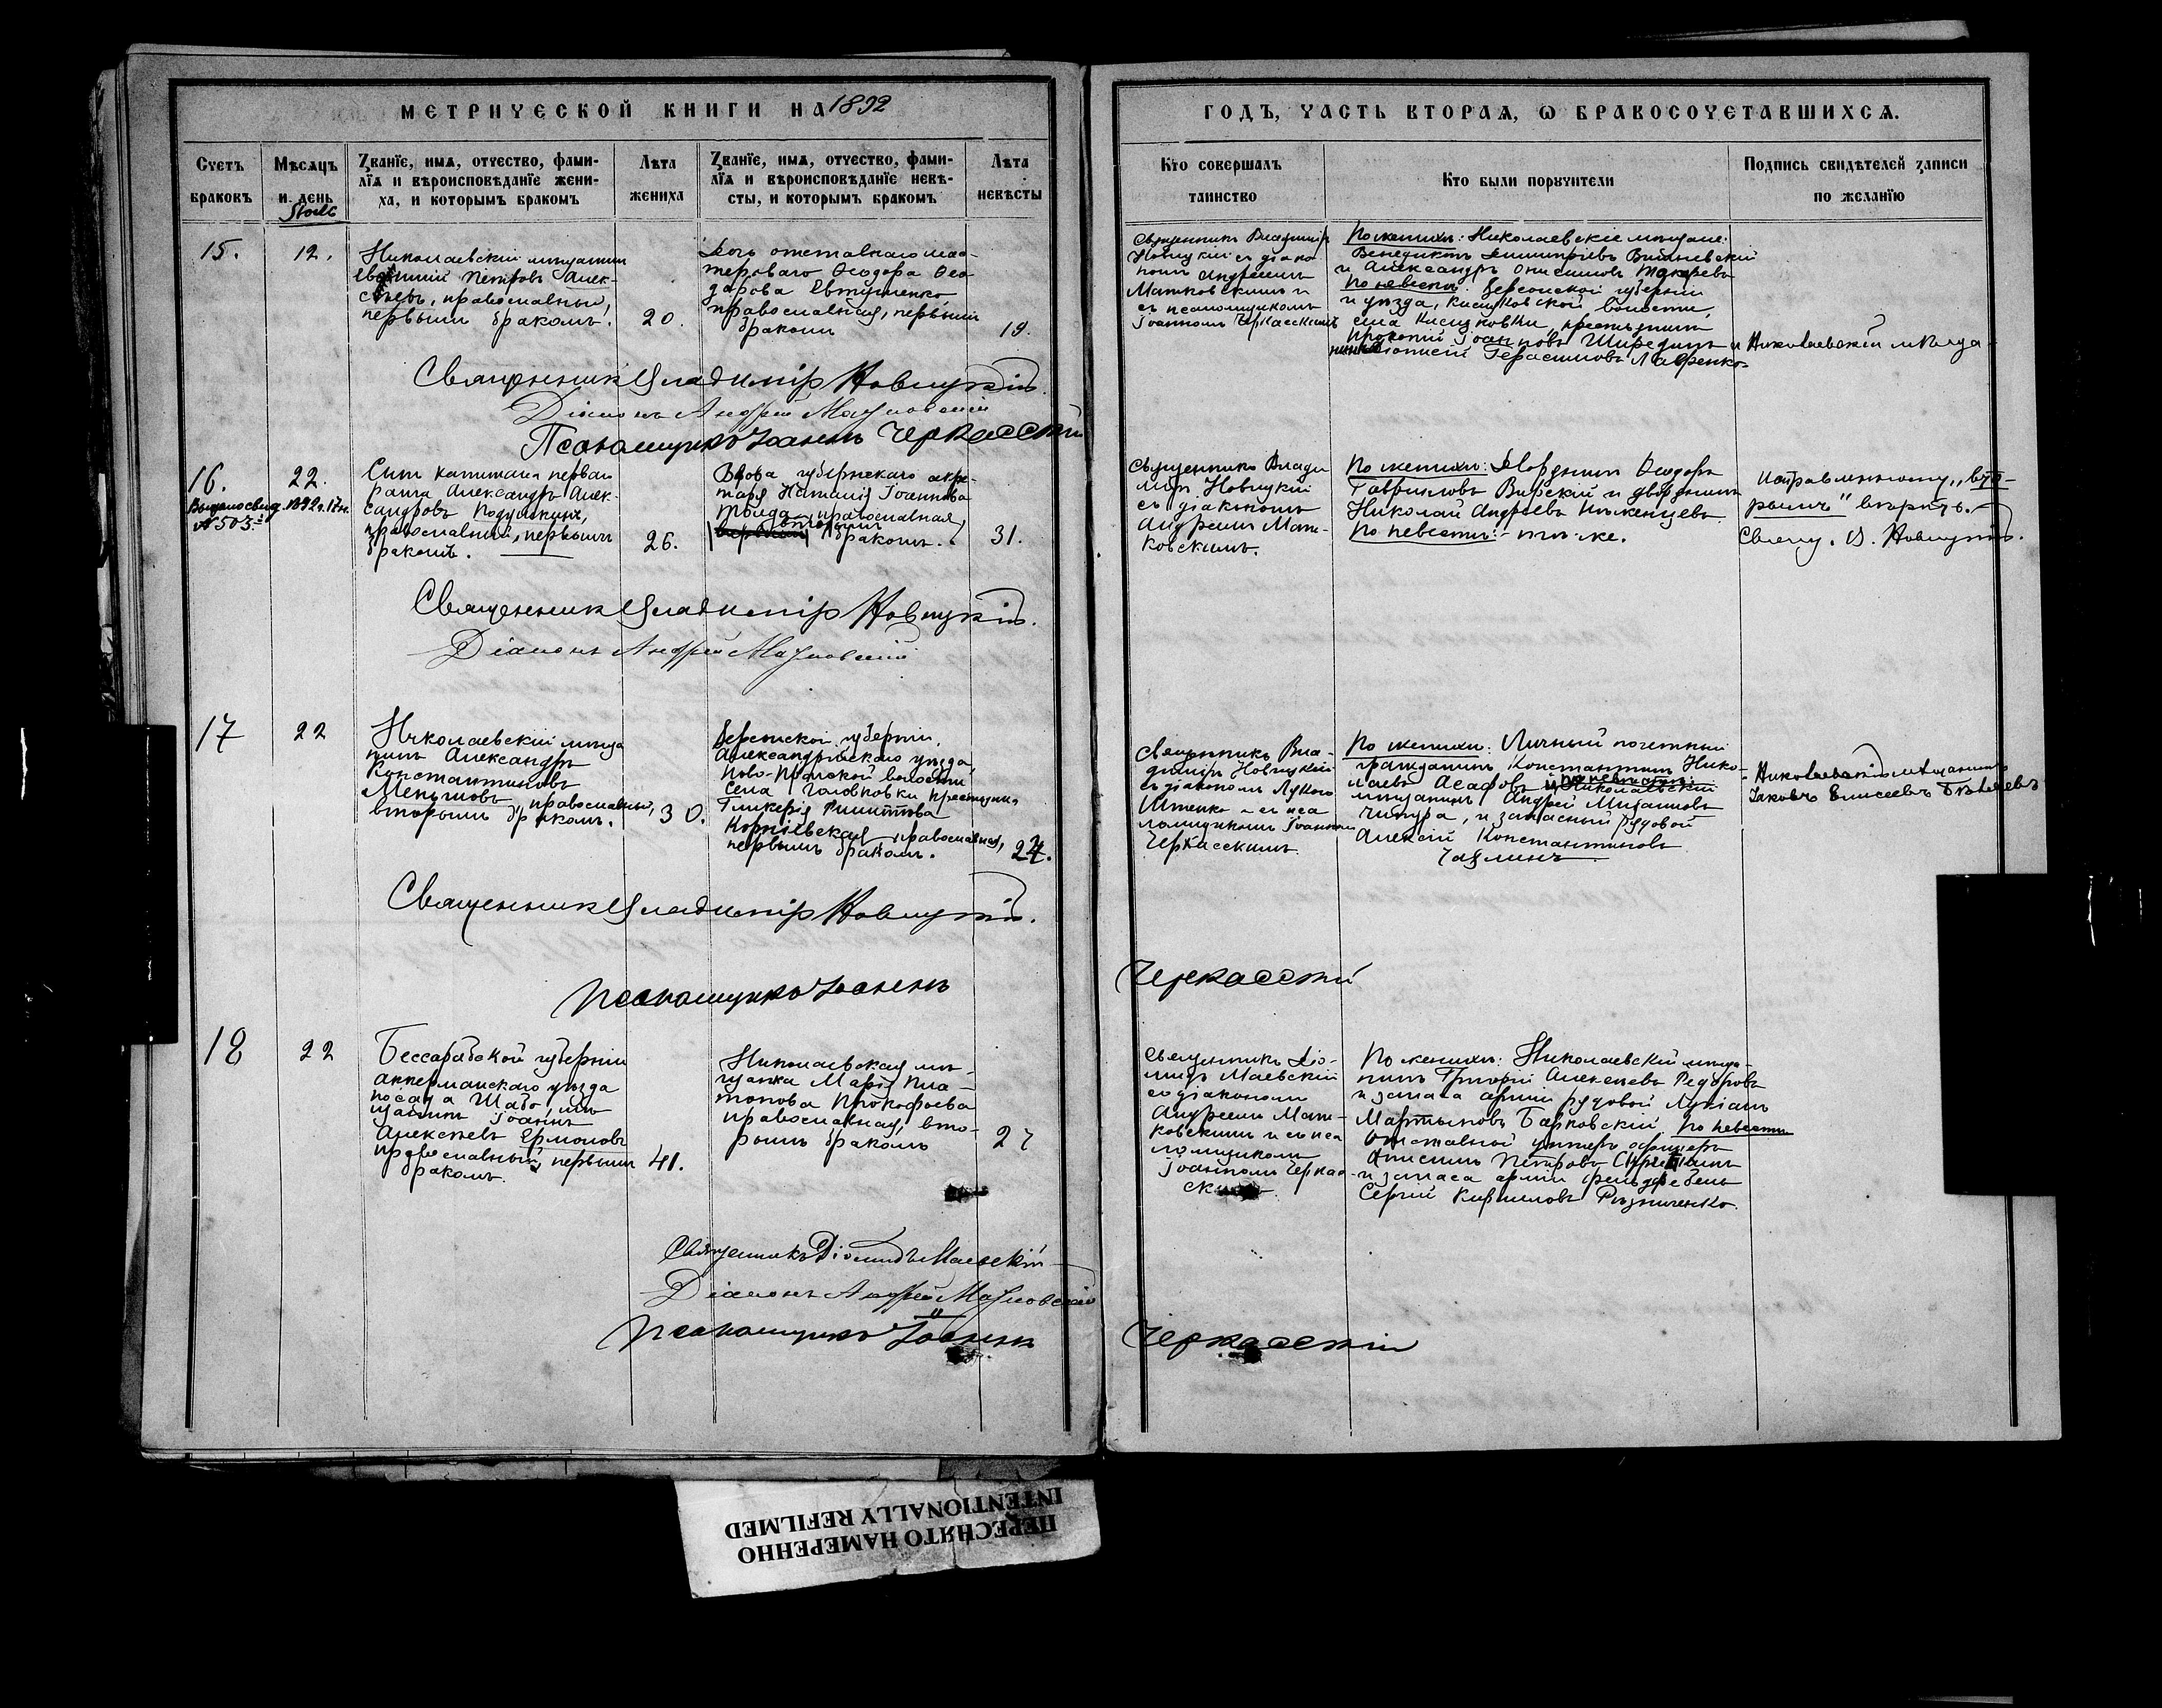 МЕТРИЧЕСКОЙ КНИГИ НА 1892
ГОДЪ, ЧАСТЬ ВТОРАЯ, Ѡ БРАКОСОЧЕТАВШИХСЯ.
Счетъ браковъ
Мѣсяцъ и день
Званїе, имя, отчество, фами-
лїя и вѣроисповѣданїе жени-
ха, и которымъ бракомъ
Лѣта жениха
Званїе, имя, отчество, фами-
лїя и вѣроисповѣданїе невѣ-
сты, и которымъ бракомъ
Лѣта невѣсты
Кто совершалъ
таинство
Кто были поручители
Подпись свидѣтелей записи
по желанїю
15.
12.
Николаевскій мѣщанинъ
Петровъ Алек-
сѣевъ, православный,
первымъ бракомъ.
20.
Дочь отставнаго мас-
тероваго Ѳеодора Ѳео
дорова Евтушенко
православная, первымъ
бракомъ
19.
Священникъ Владиміръ
Новицкій съ діако-
номъ Андреемъ
Матковскимъ и
съ псаломщикомъ
Іоанномъ Черкасскимъ
По женихѣ: Николаевскіе мѣщане:
Венедиктъ Димитріевъ
и Александръ Онисимовъ Токаревъ
По невѣстѣ: Херсонской губерніи
и уѣзда, Кисляковской волости,
села Кисляковки, крестьянинъ
Прокопій Іоанновъ и
Герасимовъ Лавренко
Николаевскій мѣща-
Священникъ Владиміръ Новицкій.
Діаконъ Андрей Матковскій
Псаломщикъ Іоаннъ Черкасскій
16.
22.
Выдано свид. 1892 г.
№ 503
Сынъ капитана перваго
ранга Александръ Алек-
сандровъ Подушкинъ,
православный, первымъ
бракомъ.
26.
Вдова губернскаго секре-
таря Наталія Іоаннова
православная,
вторымъ
бракомъ.
31.
Священникъ Влади
міръ Новицкій
съ діакономъ
Андреемъ Мат-
ковскимъ.
По женихѣ: Дворянинъ Ѳеодоръ
Гавриловъ Вирскій и дворянинъ
Николай Андреевъ
По невѣстѣ: - тѣ-же.
Исправленному „вто-
рымъ" вѣрить.
Священ. В. Новицкій.
Священникъ Владиміръ Новицкій.
Діаконъ Андрей Матковскій
17
22
Николаевскій мѣща
нинъ Александръ
Константиновъ
Меньшовъ, православный,
вторымъ бракомъ.
30.
Херсонской губерніи,
Александрійскаго уѣзда,
Ново-Пражской волости
села Головковки крестьянка
Гликерія Филиппова
Корніевская, православная,
первымъ бракомъ.
Священникъ Вла-
диміръ Новицкій
съ діакономъ Лукою
и съ пса
ломщикомъ Іоанномъ
Черкасскимъ.
По женихѣ: Личный почетный
гражданинъ Константинъ Нико-
лаевъ Асафовъ и Николаевскій
мѣщанинъ Андрей
и запасный рядовой
Алексій Константиновъ
Николаевскій мѣщанинъ
Іаковъ Елисеевъ
Священникъ Владиміръ Новицкій.
Псаломщикъ Іоаннъ
Черкасскій
18
22
Бессарабской губерніи
Аккерманскаго уѣзда
посада Шабо, мѣ
щанинъ Іоаннъ
Алексѣевъ Ермоловъ
православный, первымъ
бракомъ.
41.
Николаевская мѣ-
щанка Марія Пла-
тонова Прокофьева
православная, вто-
рымъ бракомъ
27
Священникъ Діо-
мидъ Маевскій
со діакономъ
Андреемъ Мат-
ковскимъ и съ пса
ломщикомъ
Іоанномъ Черкас-
По женихѣ: Николаевскій мѣща-
нинъ Григорій Алексѣевъ Федоровъ
и запаса арміи рядовой Лукіанъ
Мартыновъ Барковскій, По невѣстѣ
Отставной унтеръ офицеръ
Анисимъ Петровъ
и запаса арміи фельдфебель
Сергій Кирилловъ Рѣзниченко.
Священникъ Діомидъ Маевскій
Діаконъ Андрей Матковскій
Псаломщикъ Іоаннъ
Черкасскій
ПЕРЕСНЯТО НАМЕРЕННО
INTENTIONALLY REFILMED